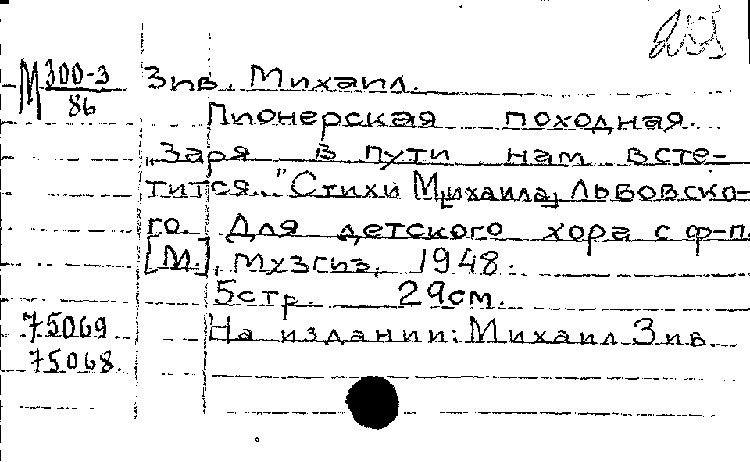 М 300-3
86
Зив, Михаил.
Пионерская походная.
„Заря в пути нам встe-
тится..." Стихи М[ихаила] Львовско-
го. Для детского хора с ф-п.
[М.], Музгиз, 1948.
5стр. 29см.
75069
На издании: Михаил Зив.
75068.